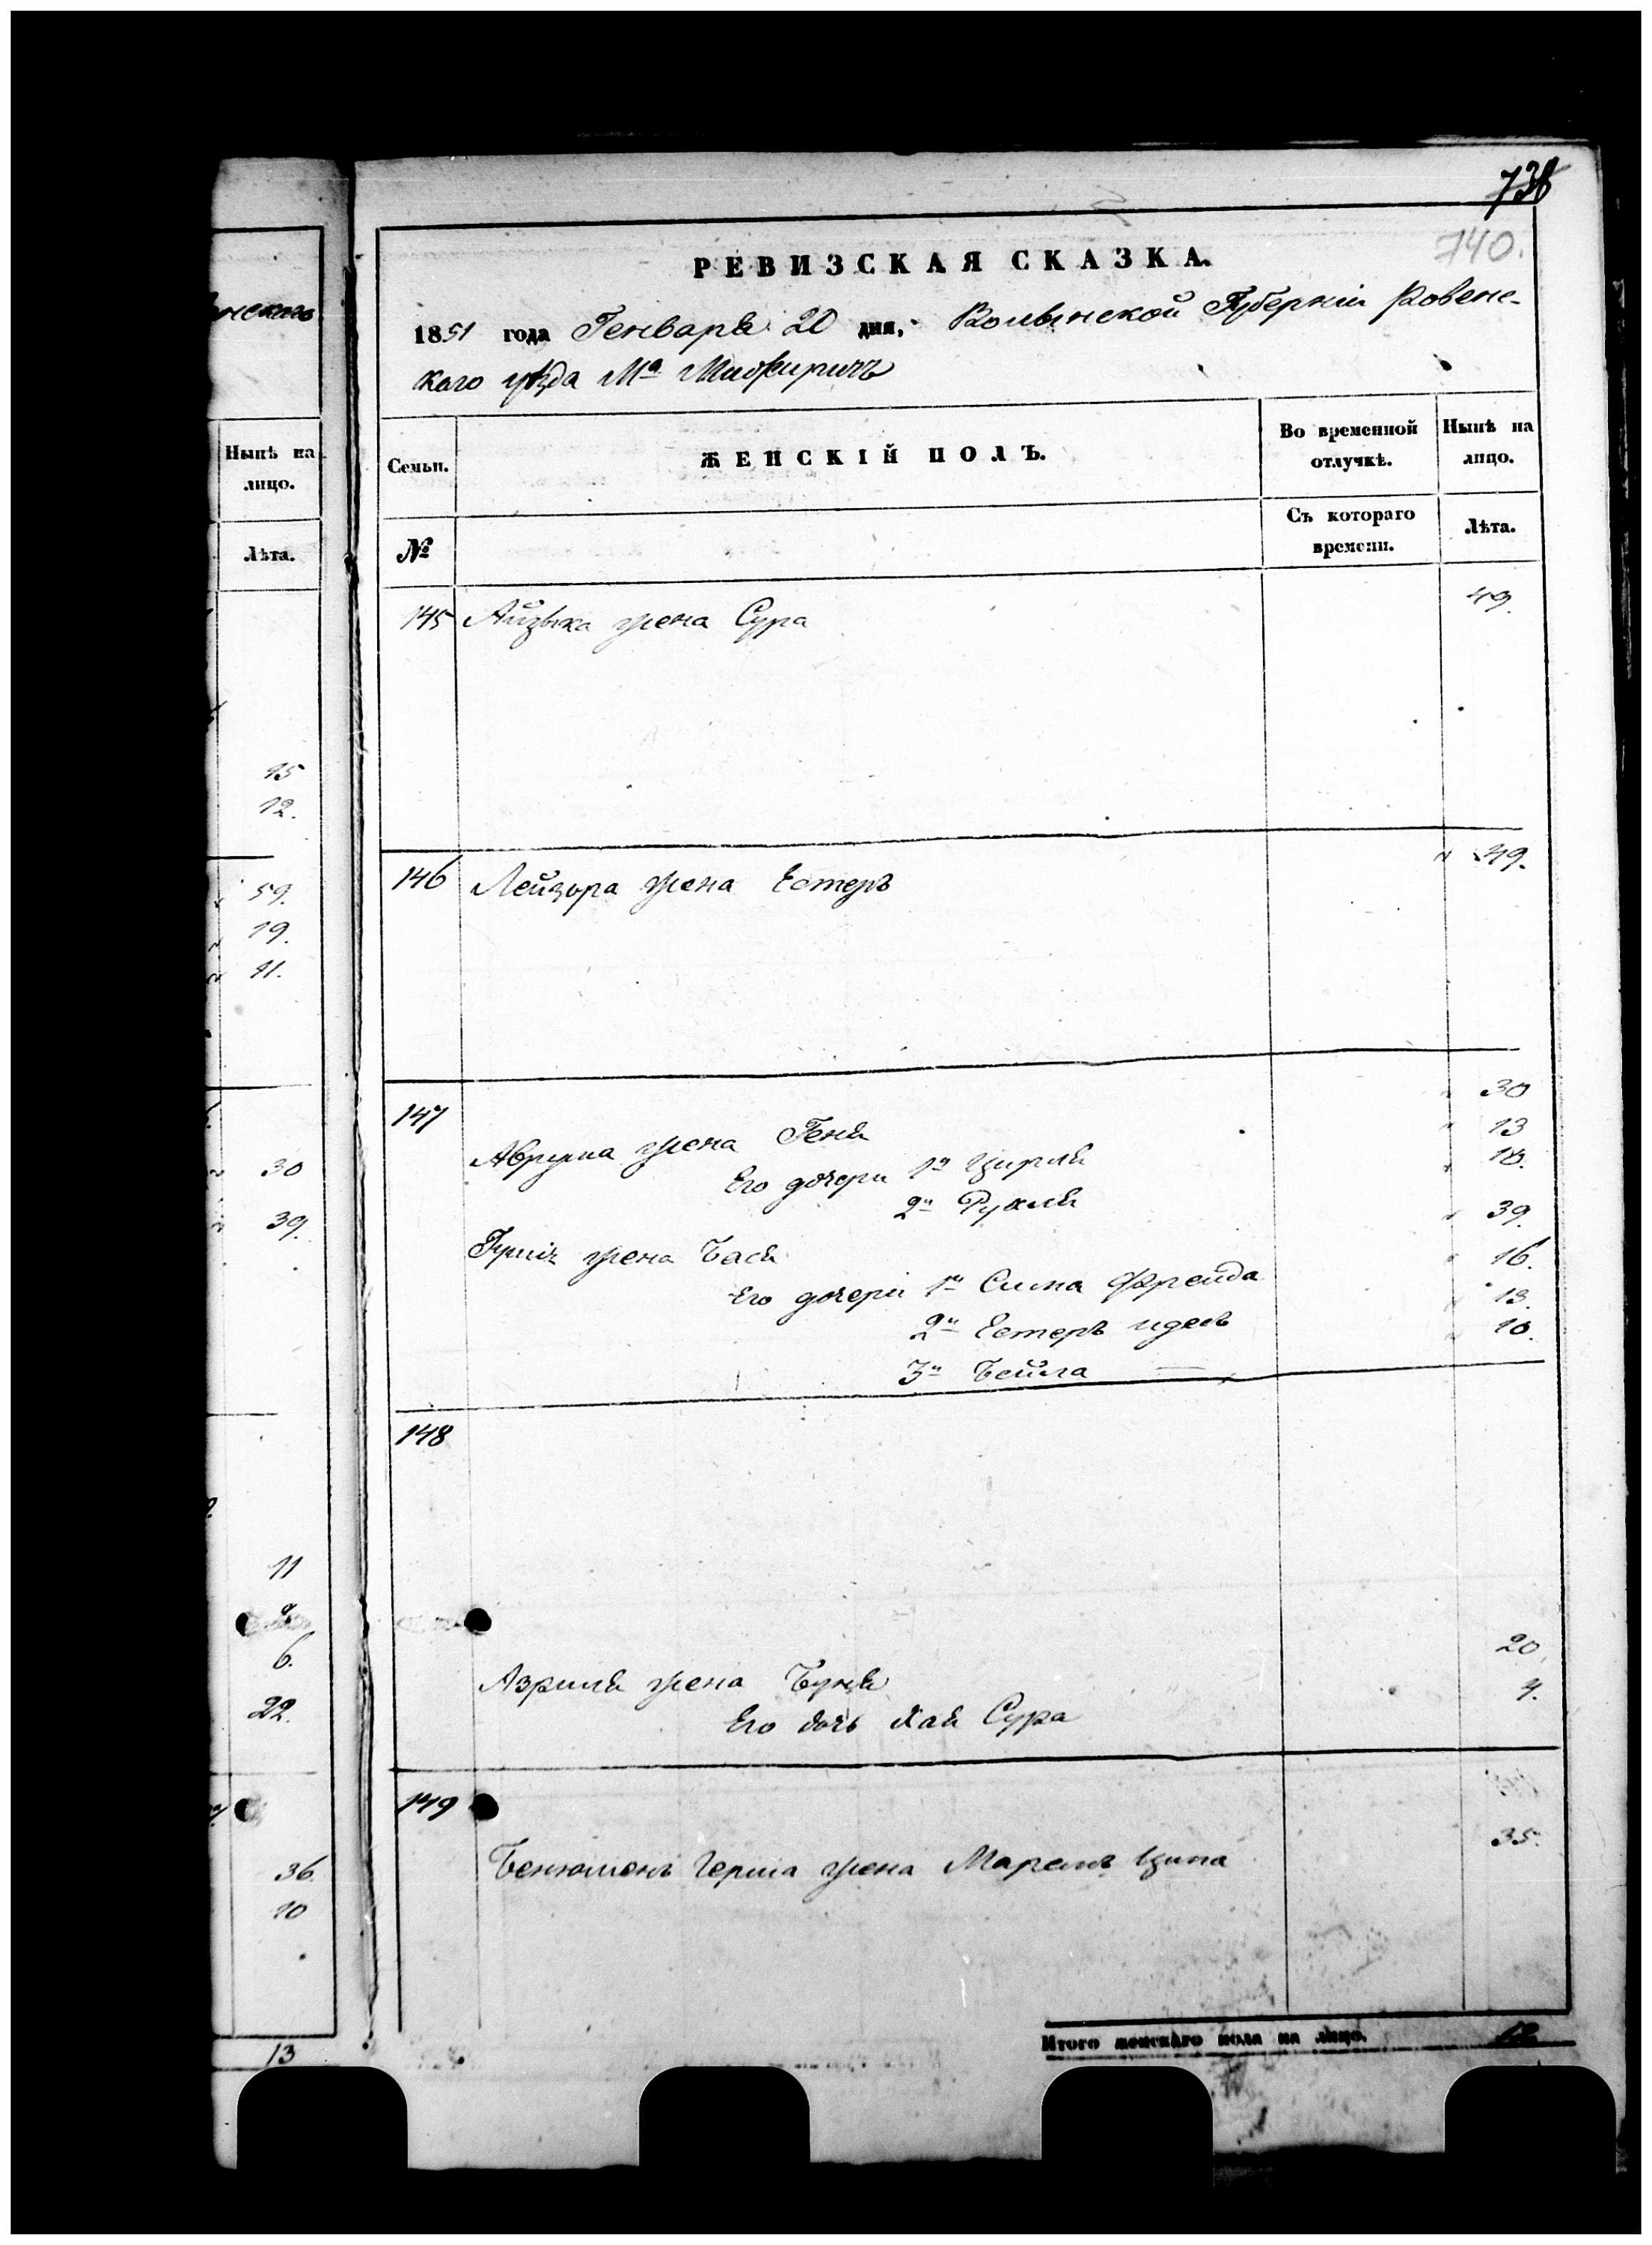 нскаго
Нынѣ на
лицо.
Лѣта.
15
12.
59.
19.
11.
30
39.
11
6.
22.
36
10
13
738
740.
РЕВИЗСКАЯ СКАЗКА.
1851 года Генваря 20 дня, Волынской Губерніи Ровенс-
каго уѣзда Мᵃ Межиричъ
Семьи.
ЖЕНСКІЙ ПОЛЪ.
Во временной
отлучкѣ.
Нынѣ на
лицо.
№
Съ котораго
времени.
Лѣта.
145 Айзыка жена Сура 49.
146 Лейзора жена Естеръ " 49.
147
Аврума жена Геня " 30
Его дочери 1я Цирля " 13
2я Рухля " 10.
жена Бася " 39.
Его дочери 1я Сима Фрейда " 16.
2я Естеръ Идесъ " 13.
3я Бейла " 10.
148
Азриля жена Буня 20
Его дочь Хая Сура 4.
149
Бенюмена Герша жена Маремъ Ципа 35.
Итого женскаго пола на лицо. 12